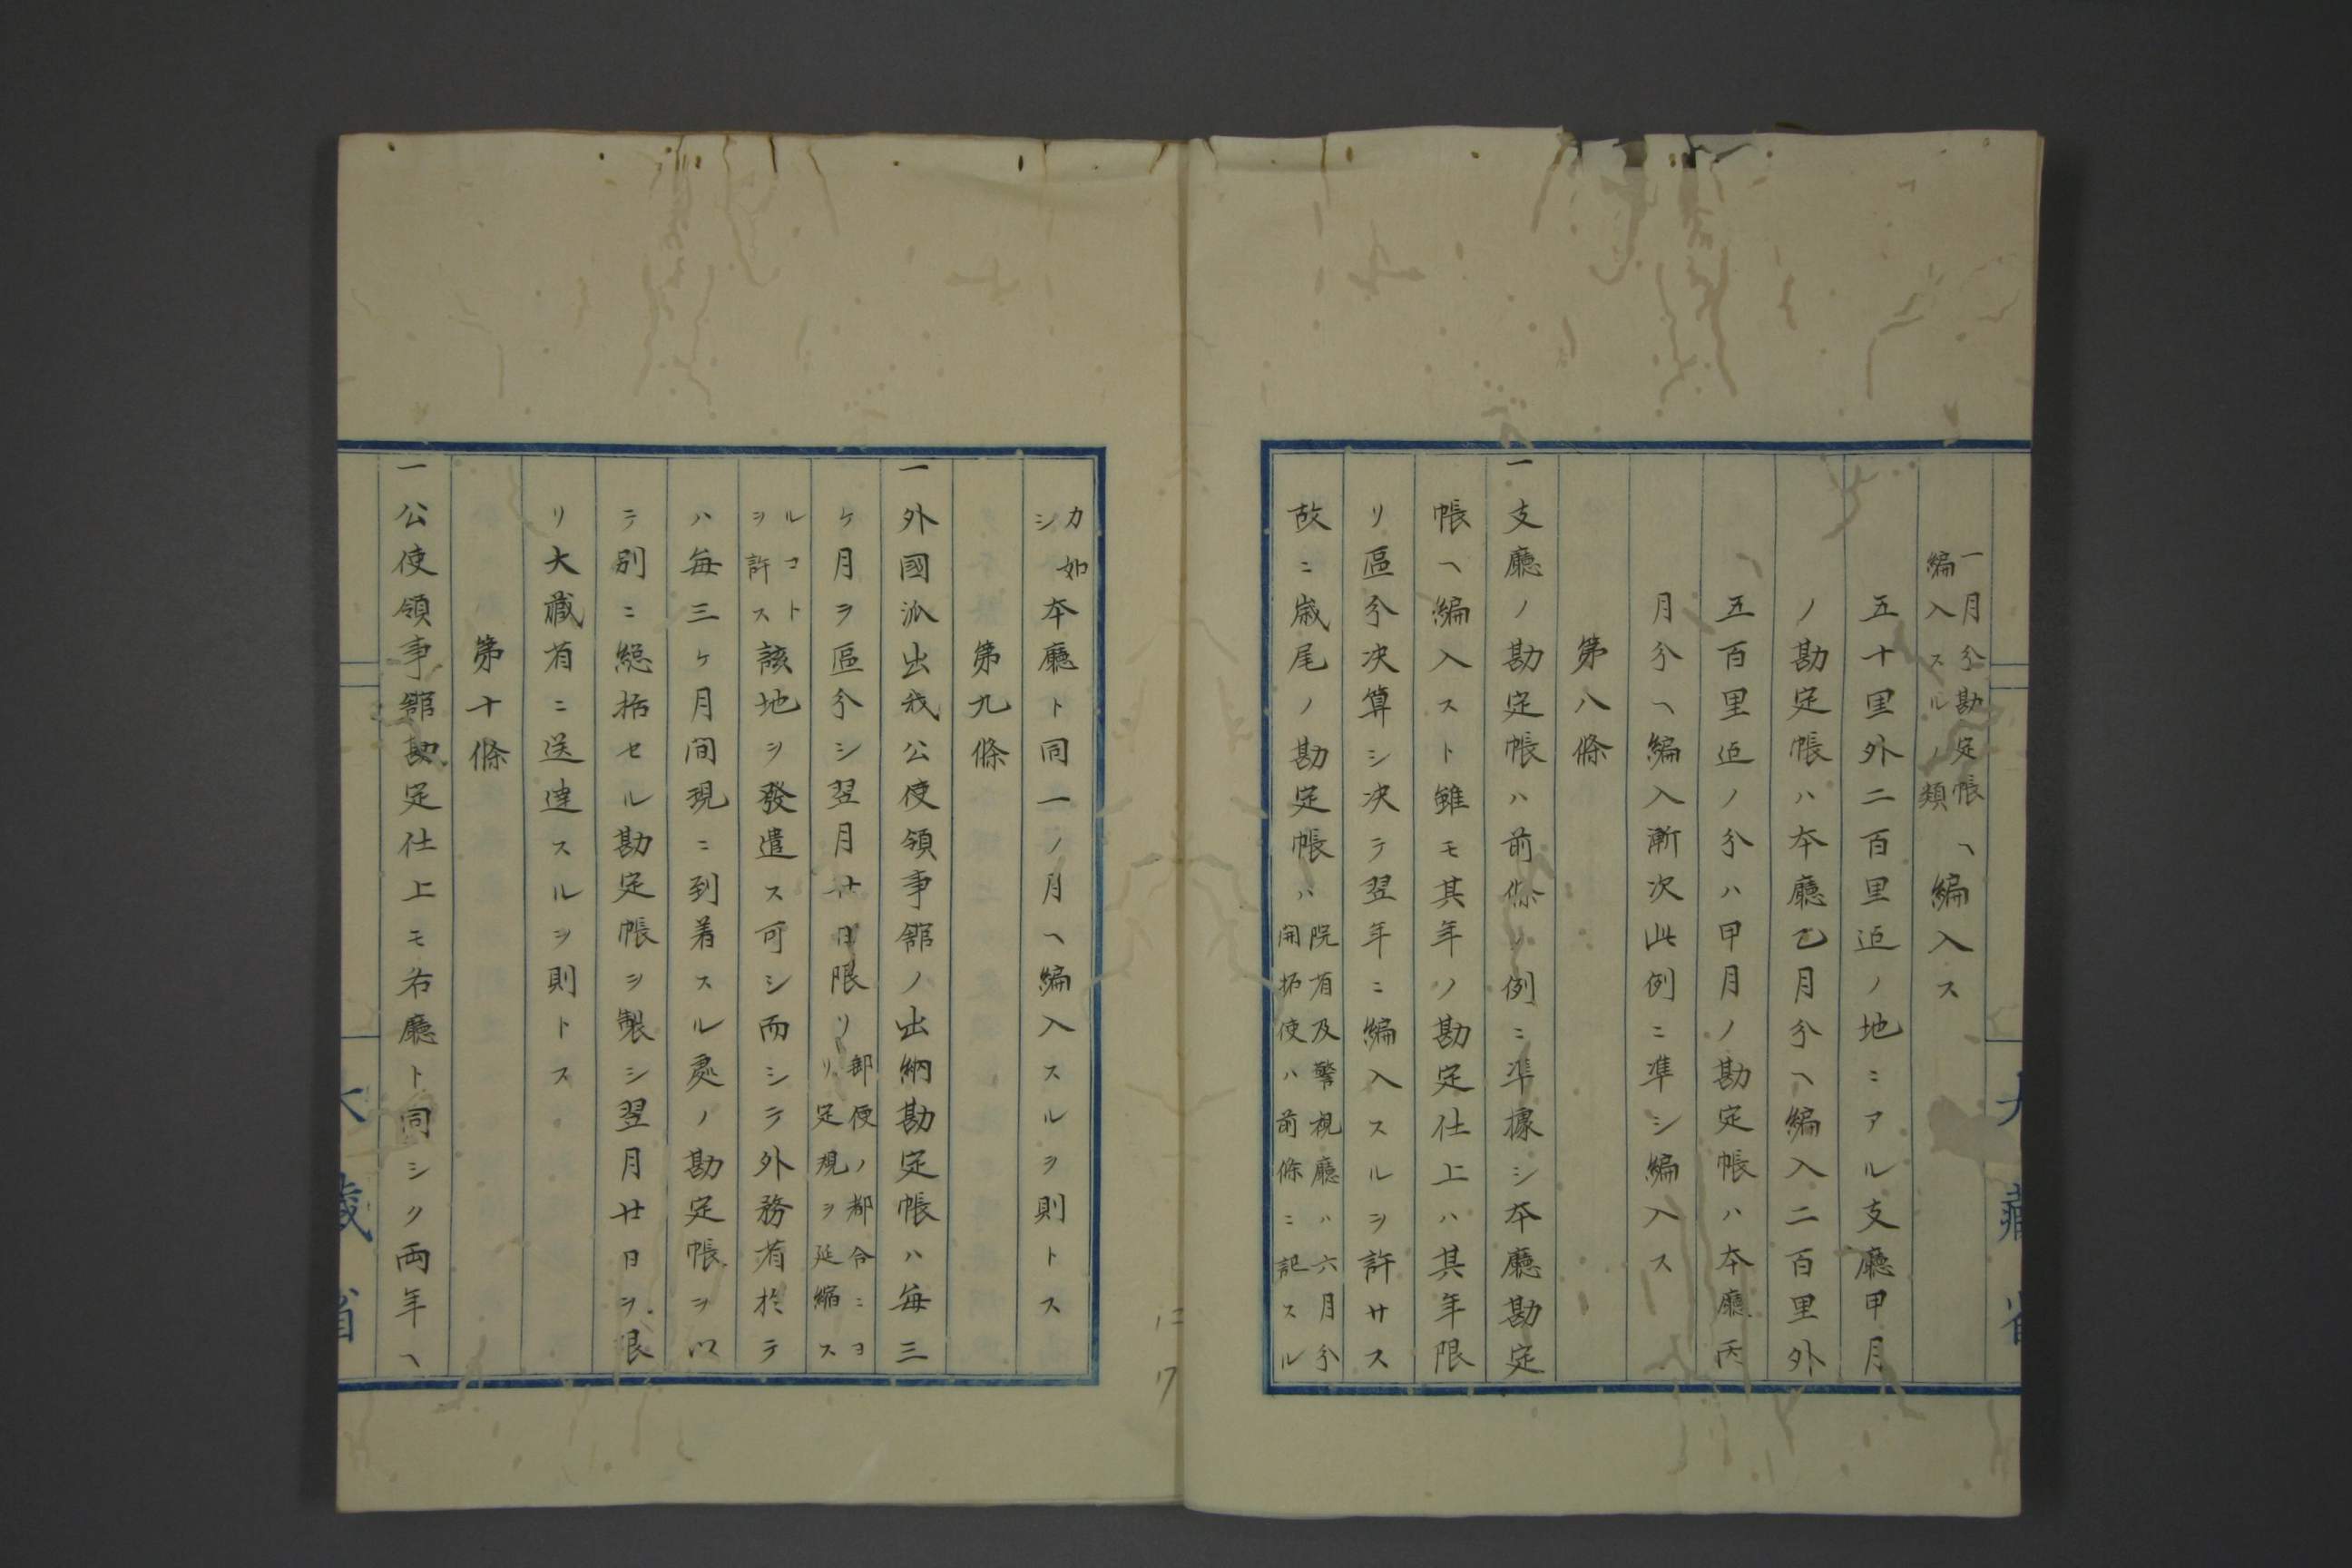 一月分勘定帳ヘ
編入スルノ類
編入ス
五十里外二百里迄ノ地ニアル支廳甲月
ノ勘定帳ハ本廳乙月分ヘ編入二百里外
五百里迄ノ分ハ甲月ノ勘定帳ハ本廳丙
月分ヘ編入漸次此例ニ準シ編入ス
第八條
一支廳ノ勘定帳ハ前條ノ例ニ準據シ本廳勘定
帳ヘ編入スト雖モ其年ノ勘定仕上ハ其年限
リ區分决算シ决テ翌年ニ編入スルヲ許サス
故ニ歳尾ノ勘定帳ハ
院省及警視廳ハ六月分
開拓使ハ前條ニ記スル
カ如
シ
本廳ト同一ノ月ヘ編入スルヲ則トス
第九條
一外國派出我公使領事館ノ出納勘定帳ハ毎三
ケ月ヲ區分シ翌月廿日限リ
郵便ノ都合ニヨ
リ定規ヲ延縮ス
ルコト
ヲ許ス
該地ヲ發遣ス可シ而シテ外務省於テ
ハ毎三ケ月間現ニ到着スル処ノ勘定帳ヲ以
テ別ニ總括セル勘定帳ヲ製シ翌月廿日ヲ限
リ大藏省ニ送達スルヲ則トス
第十條
一公使領事館勘定仕上モ各廳ト同シク両年ヘ
大藏省
大藏省